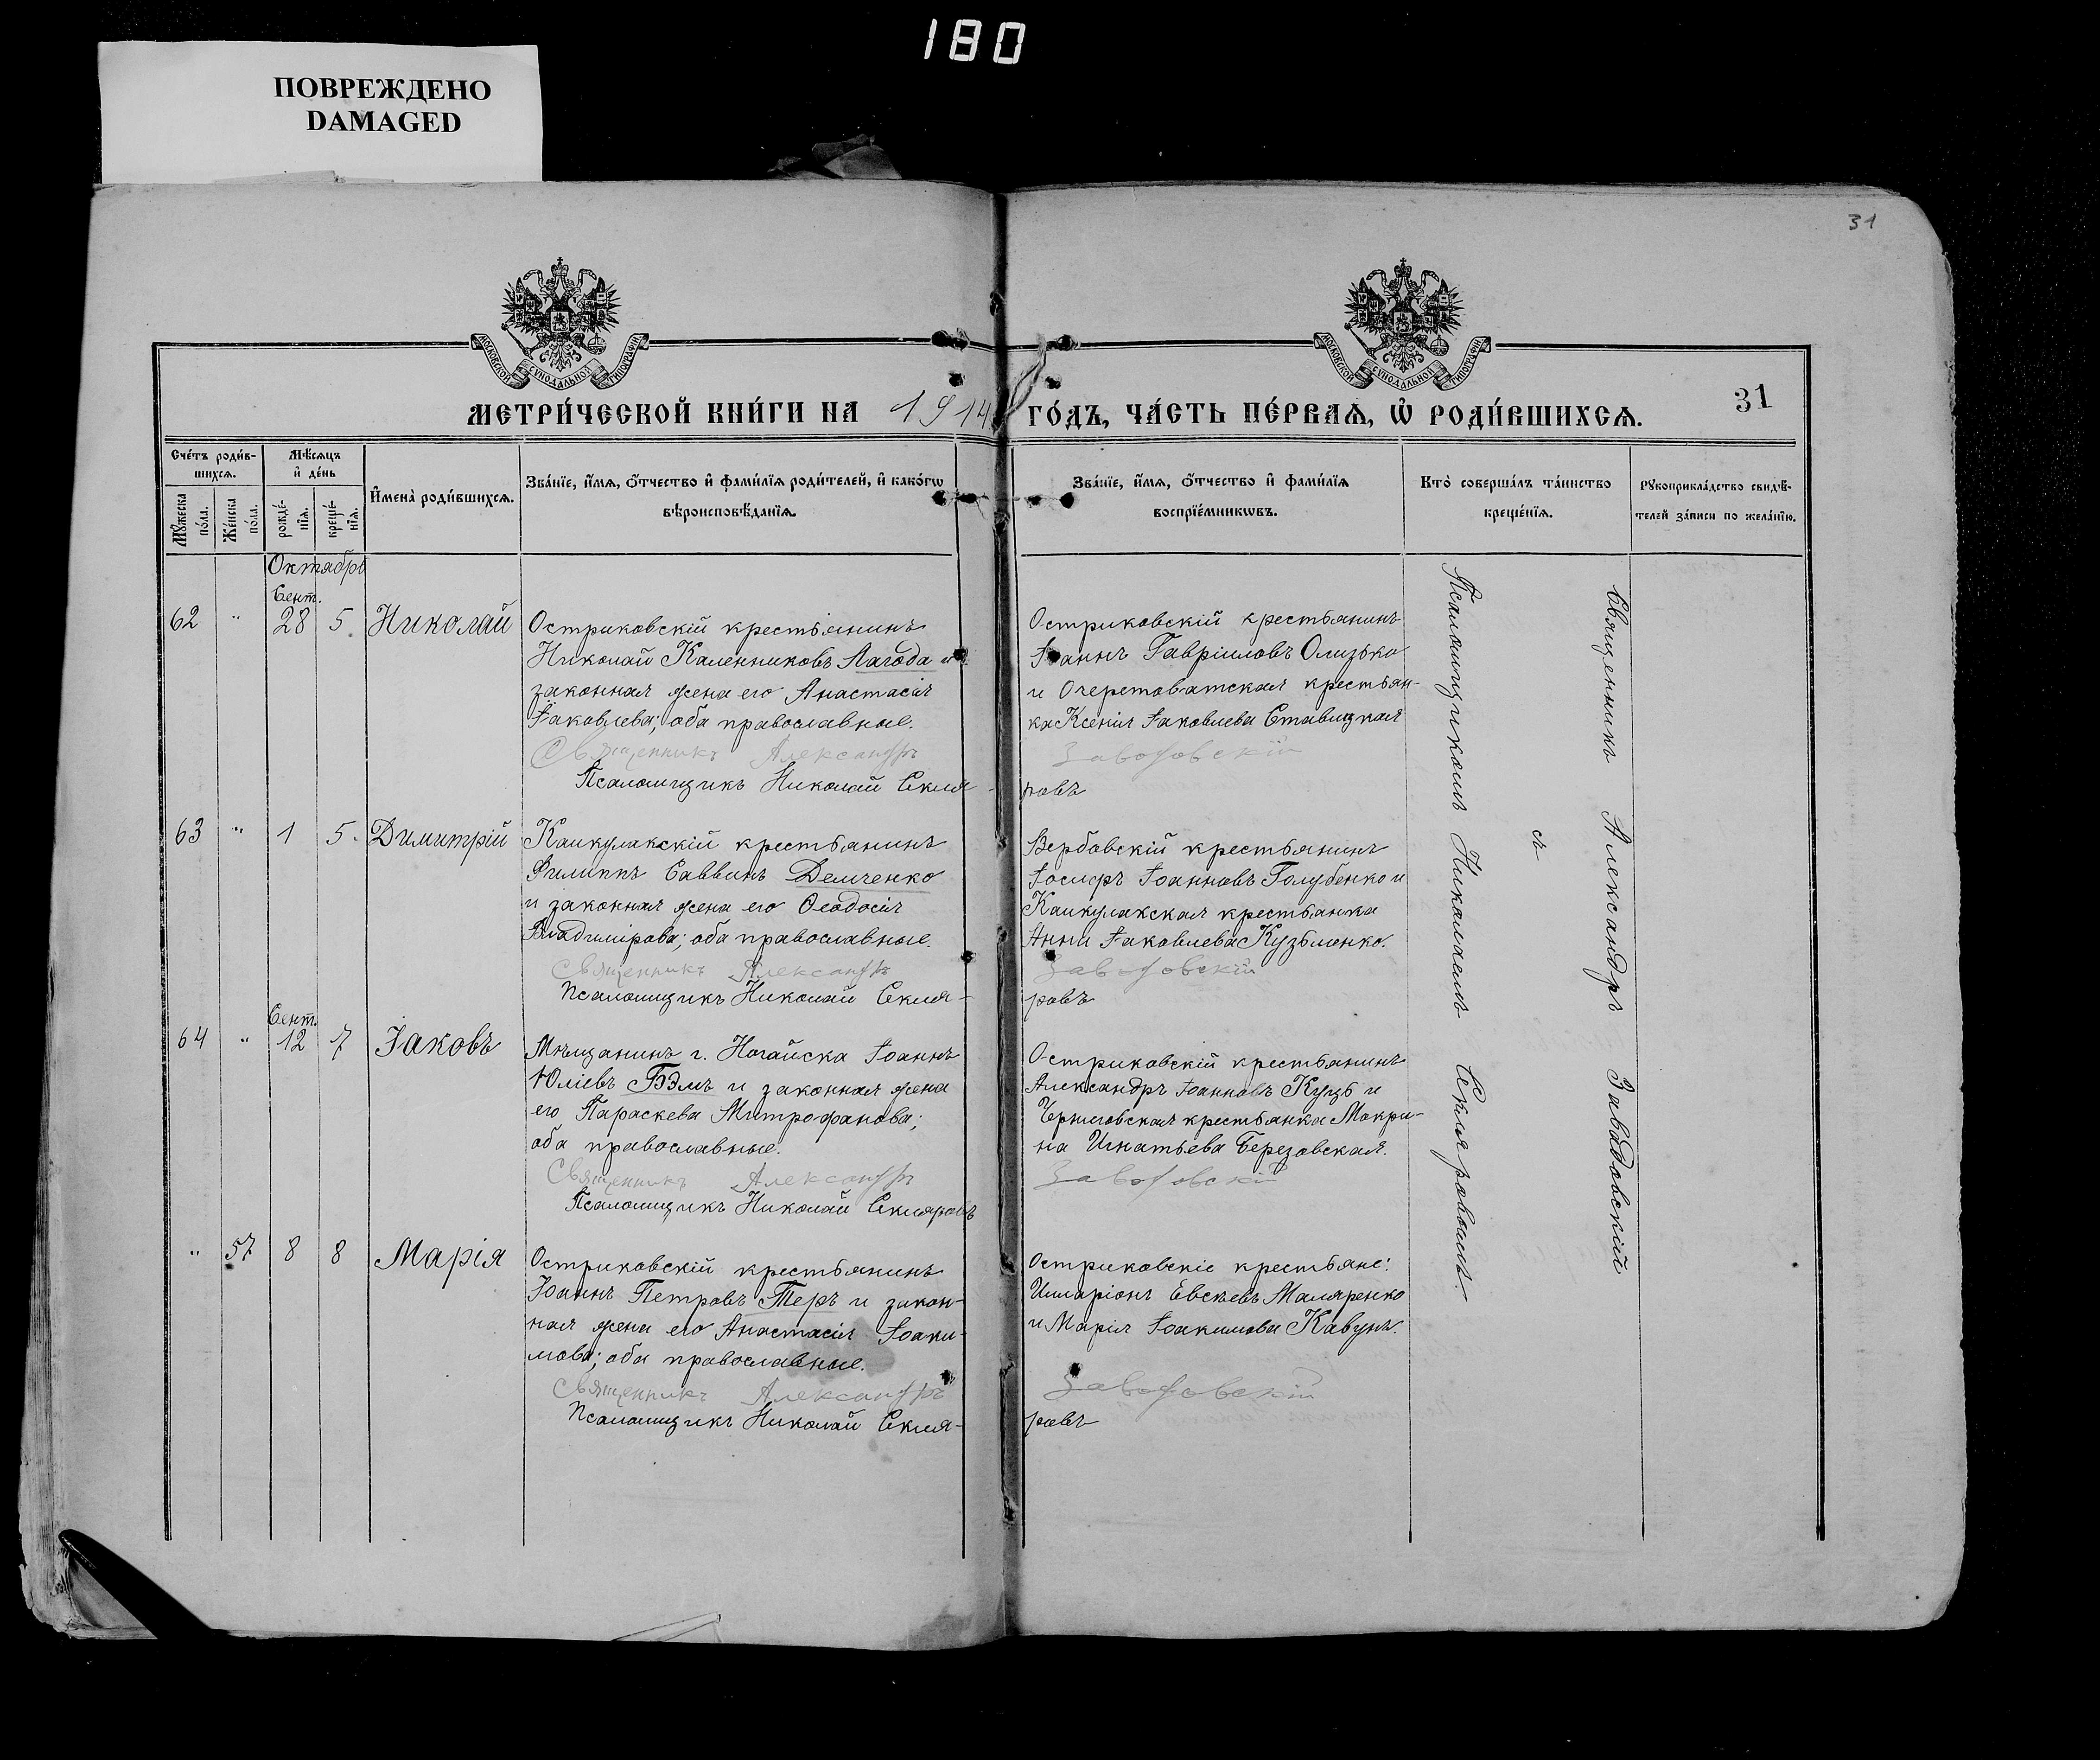 180
ПОВРЕЖДЕНО
DAMAGED
31
МОСКОВСКОЙ СУНОДАЛЬНОЙ ТИПОГРАФІИ
МОСКОВСКОЙ СУНОДАЛЬНОЙ ТИПОГРАФІИ
МЕТРИ́ЧЕСКОЙ КНИ́ГИ НА 1914 ГО́ДЪ, ЧА́СТЬ ПЕ́РВАЯ, Ѡ҆ РОДИ́ВШИХСЯ.
31
Сче́тъ роди́в-
шихся.
Мѣ́сяцъ
и҆ де́нь
Мꙋ́жеска
по́ла.
Же́нска
по́ла.
рожде́-
нїя.
креще́-
нїя.
И҆мена̀ роди́вшихся.
Зва́нїе, и҆́мя, ѻ҆́тчество и҆ фами́лїя роди́телей, и҆ како́гѡ
вѣроисповѣ́данїя.
Зва́нїе, и҆́мя, ѻ҆́тчество и҆ фами́лїя
воспрїе́мникѡвъ.
Кто̀ соверша́лъ та́инство
креще́нїя.
Рꙋкоприкла́дство свидѣ́-
телей за́писи по жела́нїю.
Октябрь
Сент.
62 " 28 5 Николай
Остриковскій крестьянинъ
Николай Каленниковъ Лагода и
законная жена его Анастасія
Іаковлева; оба православные.
Священникъ Александръ Завадовскій
Псаломщикъ Николай Скля-
ровъ
Остриковскій крестьянинъ
Іоаннъ Гавріиловъ Олизько
и Очеретоватская крестьян-
ка Ксенія Іаковлева Ставицкая
63 " 1 5 Димитрій
Каинкулакскій крестьянинъ
Филиппъ Саввинъ Демченко
и законная жена его Ѳеодосія
Владимірова; оба православные.
Священникъ Александръ Завадовскій
Псаломщикъ Николай Скля-
ровъ
Вербовскій крестьянинъ
Іосифъ Іоанновъ Голубенко и
Каинкулакская крестьянка
Анна Іаковлева Кузьменко.
Сент.
64 " 12 7 Іаковъ
Мѣщанинъ г. Ногайска Іоаннъ
Юліевъ Бэмъ и законная жена
его Параскева Митрофанова;
оба православные.
Священникъ Александръ Завадовскій
Псаломщикъ Николай Скляровъ
Остриковскій крестьянинъ
Александръ Іоанновъ Куцъ и
Черниговская крестьянка Макри-
на Игнатьева Березовская.
" 57 8 8 Марія
Остриковскій крестьянинъ
Іоаннъ Петровъ Теръ и закон-
ная жена его Анастасія Іоаки-
мова; оба православные.
Священникъ Александръ Завадовскій
Псаломщикъ Николай Скля-
ровъ
Остриковскіе крестьяне:
Иларіонъ Евсѣевъ Маляренко
и Марія Іоакимова Кавунъ.
Священникъ Александръ Завадовскій
съ
Псаломщикомъ Николаемъ Скляровымъ.